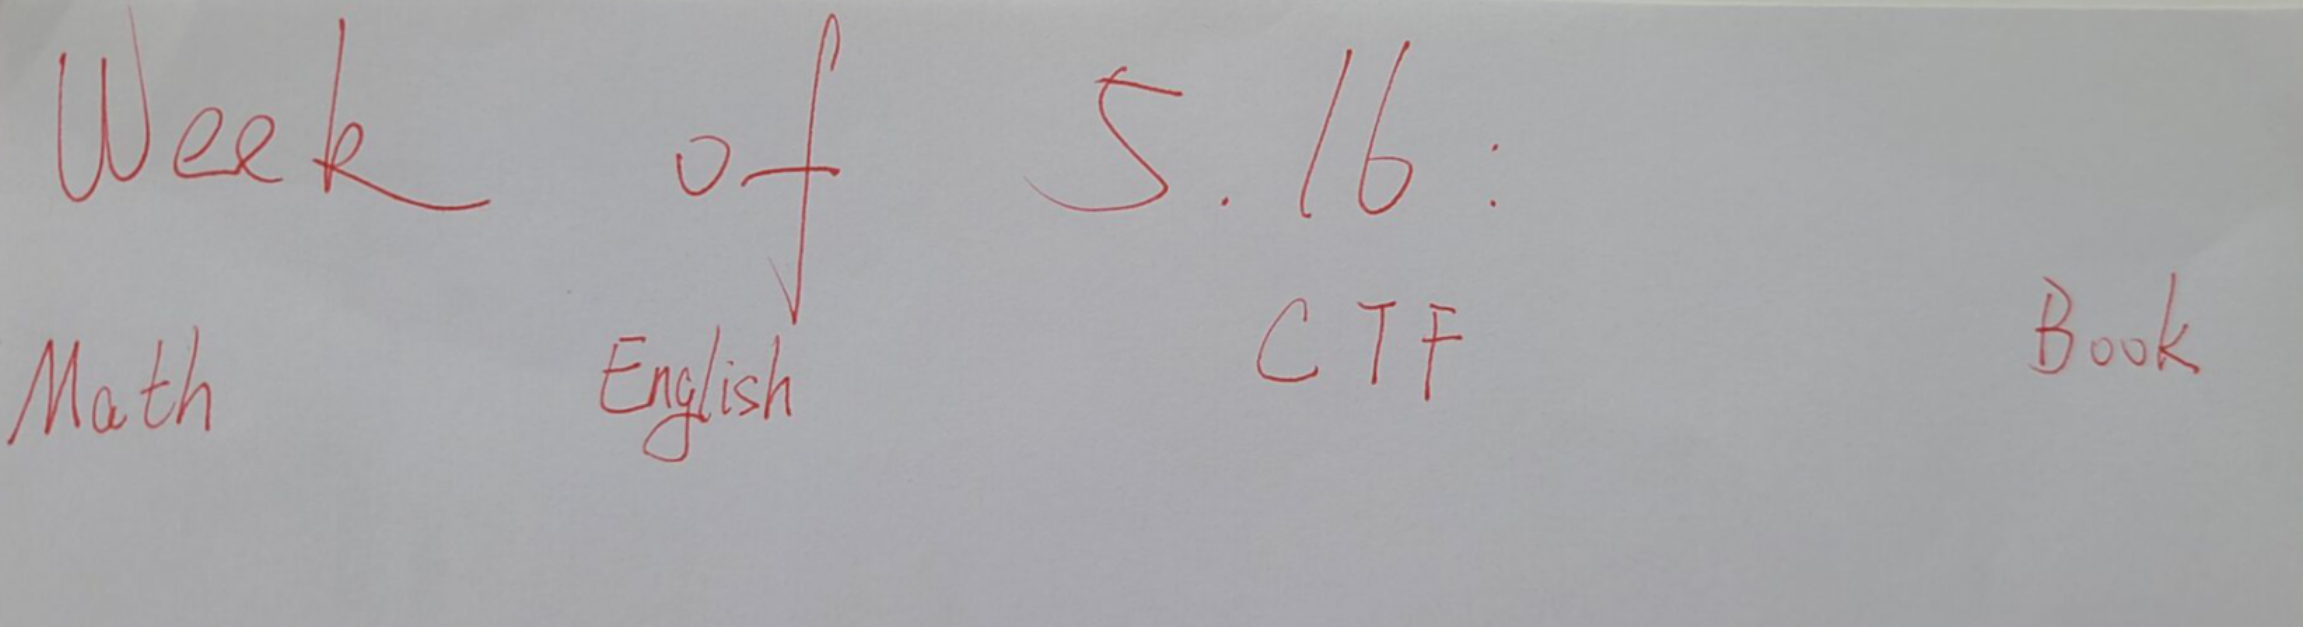 Week of 5.16:
Math English CTF Book